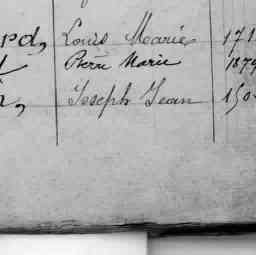 Louis Marie 171
Pierre Marie 1879
Joseph Jean 150